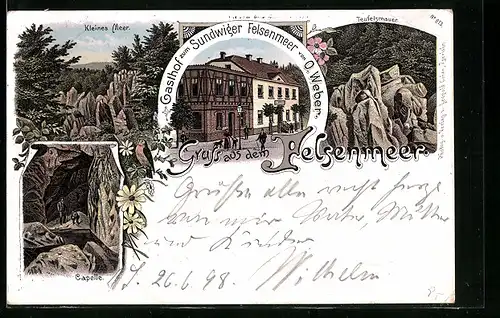 Kleines Meer.
Gasthof zum Sundwiger Felsenmeer von O. Weber.
Teufelsmauer.
Gruss aus dem Felsenmeer.
Capelle.
Grüße alle recht herz
von mir Vater, Mutter
und Kinder
26.6.98. Wilhelm